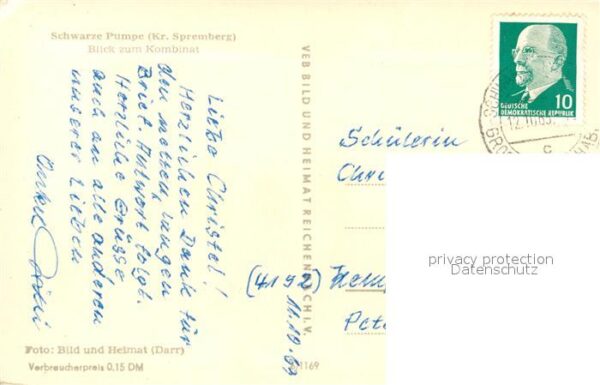 Schwarze Pumpe (Kr. Spremberg)
Blick zum Kombinat
Liebe Christel!
Herzlichen Dank für
den netten, langen
Brief. Antwort folgt.
Herzliche Grüsse
auch an alle anderen
unserer Lieben
Onkel
11.10.63
VEB BILD UND HEIMAT REICHENBACH I. V.
DEUTSCHE
DEMOKRATISCHE REPUBLIK
10
12.10.63
c
Schülerin
Chri
(4192)
Pet
privacy protection
Datenschutz
Foto: Bild und Heimat (Darr)
Verbraucherpreis 0.15 DM
1169